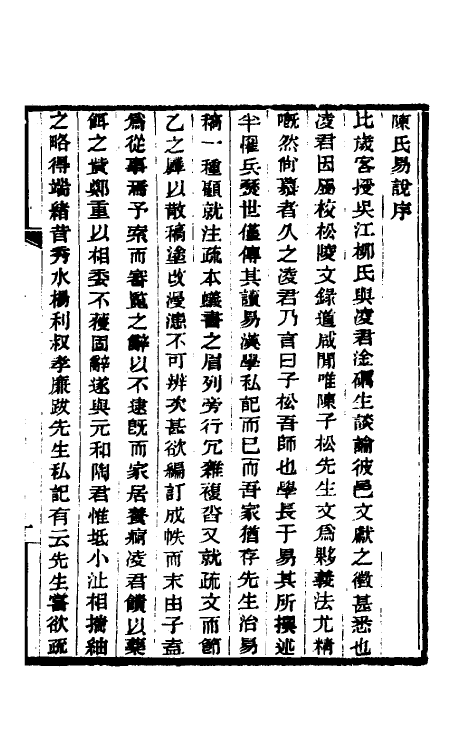 陳氏易說序
比歲客授吳江柳氏與凌君淦礪生談論彼邑文獻之徵甚悉也
凌君因屬校松陵文錄道咸閒唯陳子松先生文爲夥義法尤精
嘅然向慕者久之凌君乃言曰子松吾師也學長于易其所撰述
半罹兵燹世僅傳其讀易漢學私記而已而吾家猶存先生治易
稿一種顧就注疏本蟻書之眉列旁行冗雜複沓又就疏文而節
乙之廁以散稿塗改漫漶不可辨次甚欲編訂成帙而末由子盍
爲從事焉予索而審覧之辭以不逮旣而家居養疴凌君饋以藥
餌之貲鄭重以相委不獲固辭遂與元和陶君惟坻小沚相擣紬
之略得端緒昔秀水楊利叔孝廉政先生私記有云先生嘗欲疏